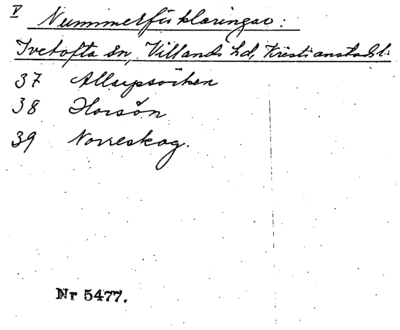 V Nummerförklaringar:
Ivetofta sn, Villands hd, Kristianstads l.
37 Allsupsviken
38 Horsön
39 Norreskog.
Nr 5477.